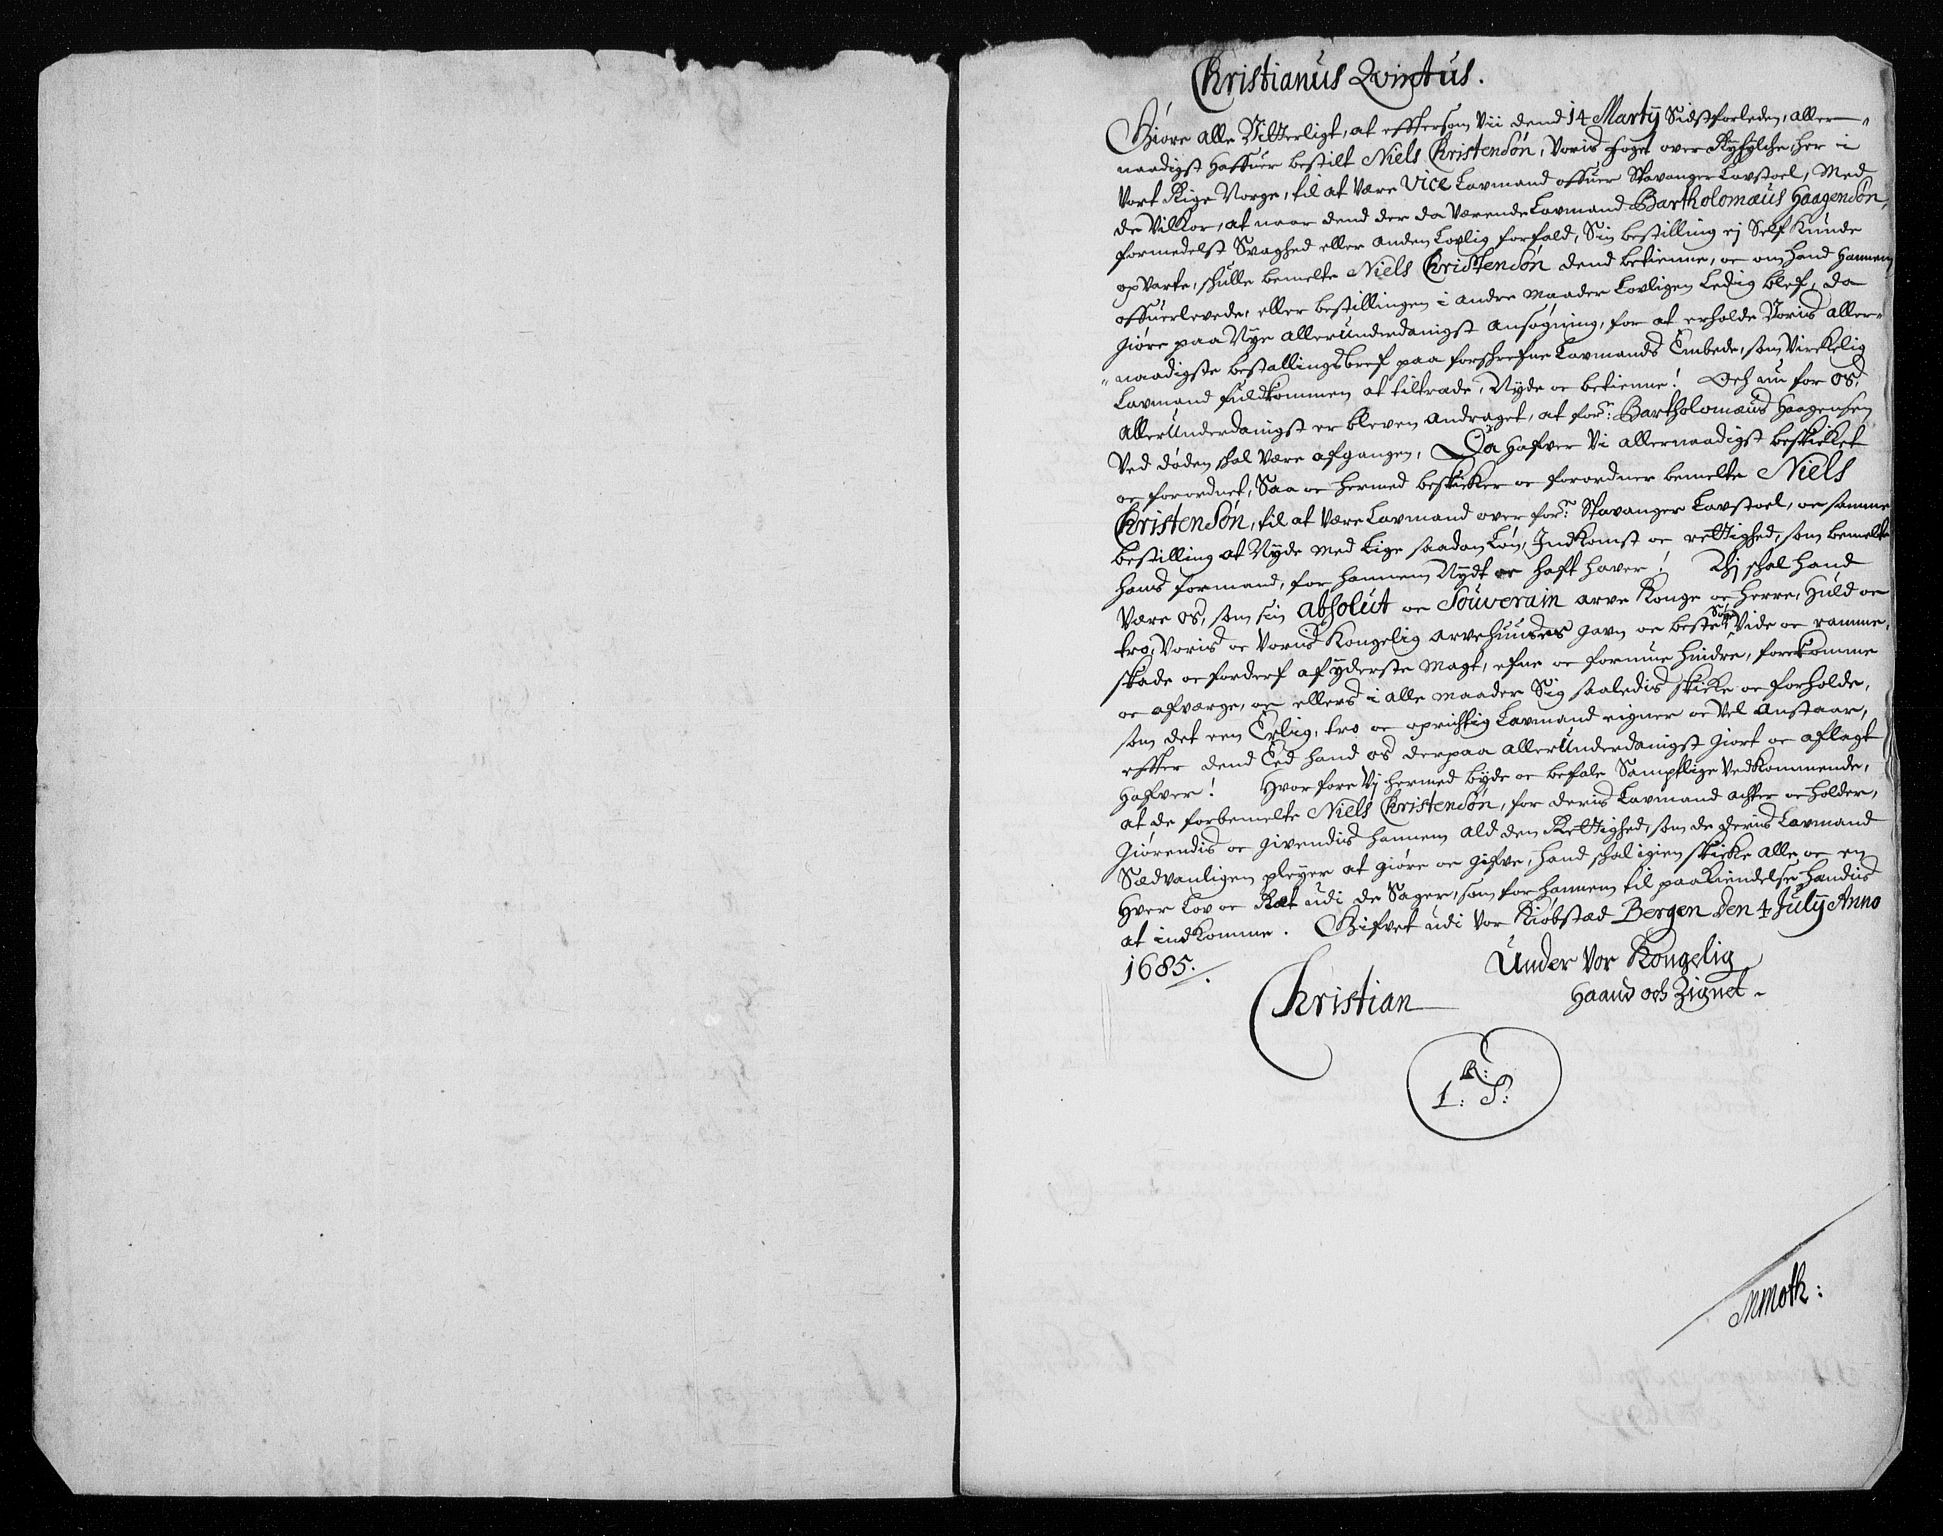 Christianus Qvintus.
Giøre alle Vitterligt, at effterson Vii dend 14 Martij Sidstforleden, aller-
naadigst haffuer bestilt Niels Christensøn, Voris foget over Ryfylche, her i
Vort Rige Norge, til at Være Vice Lavmand offuer Stavanger Lavstoel, Med
de Vilkor, at naar dend der da Værende Lavmand Bartholomæus Haagensøn,
formedelst Svaghed eller anden Lovlig forfald, Sin bestilling ej Self Kunde
opvarte, skulle bemelte Niels Christensøn dend betienne, oc om hand hannem
offuerlevede, eller bestillingen i andre maader Lovligen Ledig blef, da
giøre paa Nye allerunderdanigst ansøgning, for at erholde Voris aller-
naadigste bestallingsbref paa forschrefne Lavmands Embede, som Virkelig
Lavmand fuldkommen at tiltræde, Nyde oc betienne! Och nu for os,
Allerunderdanigst er bleven andraget, at forn: Bartholomæus Haagensen
Ved døden skal være afgangen, Da hafver Vi allernaadigst beskicket
oc forordnet, Saa oc hermed beskicker oc forordner bemelte Niels
Christensøn, til at Være Lavmand over forn: Stavanger Lavstoel, oc samme
bestilling at Nyde med Lige saadan Løn, Indkomst oc rettighed, som bemelte
hans formand, for hannem Nydt oc haft haver! Thj skal hand
Være os, som sin absolut oc Souverain arve Konge oc Herre, Huld oc
tro, Voris oc Voris Kongelig arvehuuses gavn oc beste Søge, Vide oc ramme,
skade oc forderf af yderste magt, efne oc formue hindre, forekomme
oc afværge, oc ellers i alle maader Sig saaledis skicke oc forholde,
som det een Erlig, tro oc oprichtig Lavmand eigner oc Vel anstaar,
effter dend Eed hand os derpaa allerunderdanigst giort oc aflagt
hafver! Hvorfore Vj hermed byde oc befale Samptlige Vedkommende,
at de forbemelte Niels Christensøn, for deris Lavmand achter oc holder,
Giørendis oc givendis hannem ald den Rettighed, som de deris Lavmand
Sædvanligen pleyer at giøre oc gifve, hand skal igien skicke alle oc en
Hver Lov oc Ræt udi de Sager, som for hannem til paakiendelse handis
at indkomme. Gifvet udi Vor Kiøbstæd Bergen den 4 July Anno
1685.
Under Vor Kongelig
Haand och Zignet.
Christian
R:
L: S:
MMoth: